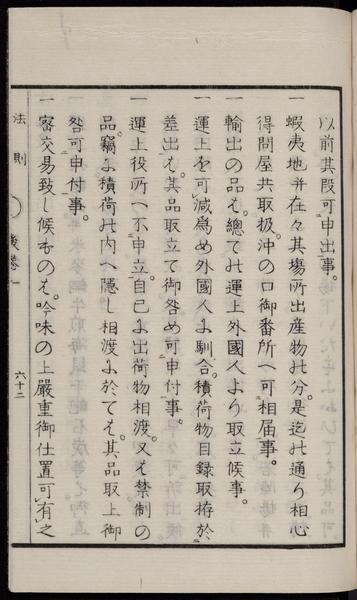 以前其段可申出事。
一 蝦夷地并在々其場所出産物の分。是迄の通り相心
得問屋共取扱。沖の口御番所へ可相届事。
一 輸出の品は。總ての運上外國人より取立候事。
一 運上を可減為め外國人に馴合。積荷物目録取拵於
差出は。其品取立て御咎め可申付事。
一 運上役所へ不申立。自己に出荷物相渡。又は禁制の
品。竊に積荷の内へ隠し相渡に於ては。其品取上御
咎可申付事。
一 密交易致し候ものは。吟味の上嚴重御仕置可有之
法則
六十二